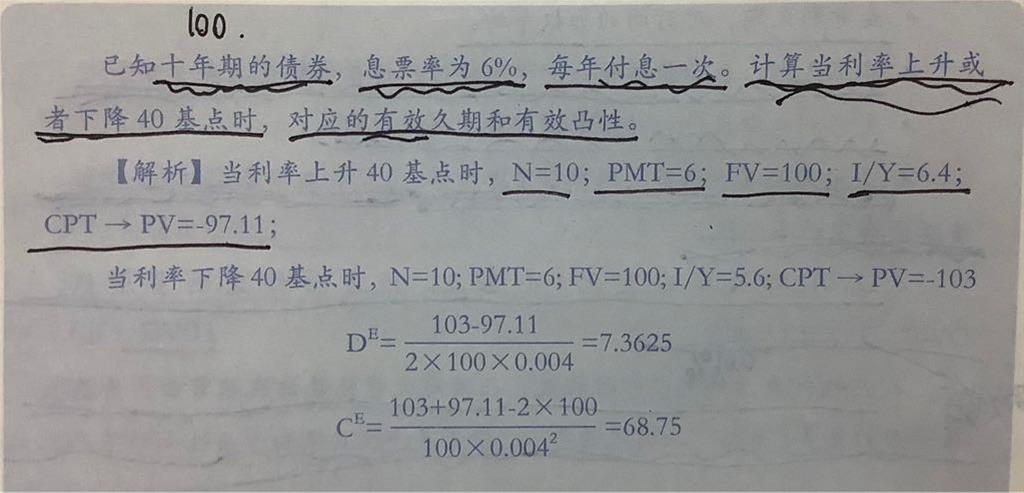 100.
已知十年期的债券，息票率为 6%，每年付息一次。计算当利率上升或
者下降 40 基点时，对应的有效久期和有效凸性。
【解析】当利率上升 40 基点时，N=10；PMT=6；FV=100；I/Y=6.4；
CPT → PV=-97.11；
当利率下降 40 基点时，N=10; PMT=6; FV=100; I/Y=5.6; CPT → PV=-103
D^E= (103-97.11)/(2×100×0.004) =7.3625
C^E= (103+97.11-2×100)/(100×0.004²) =68.75